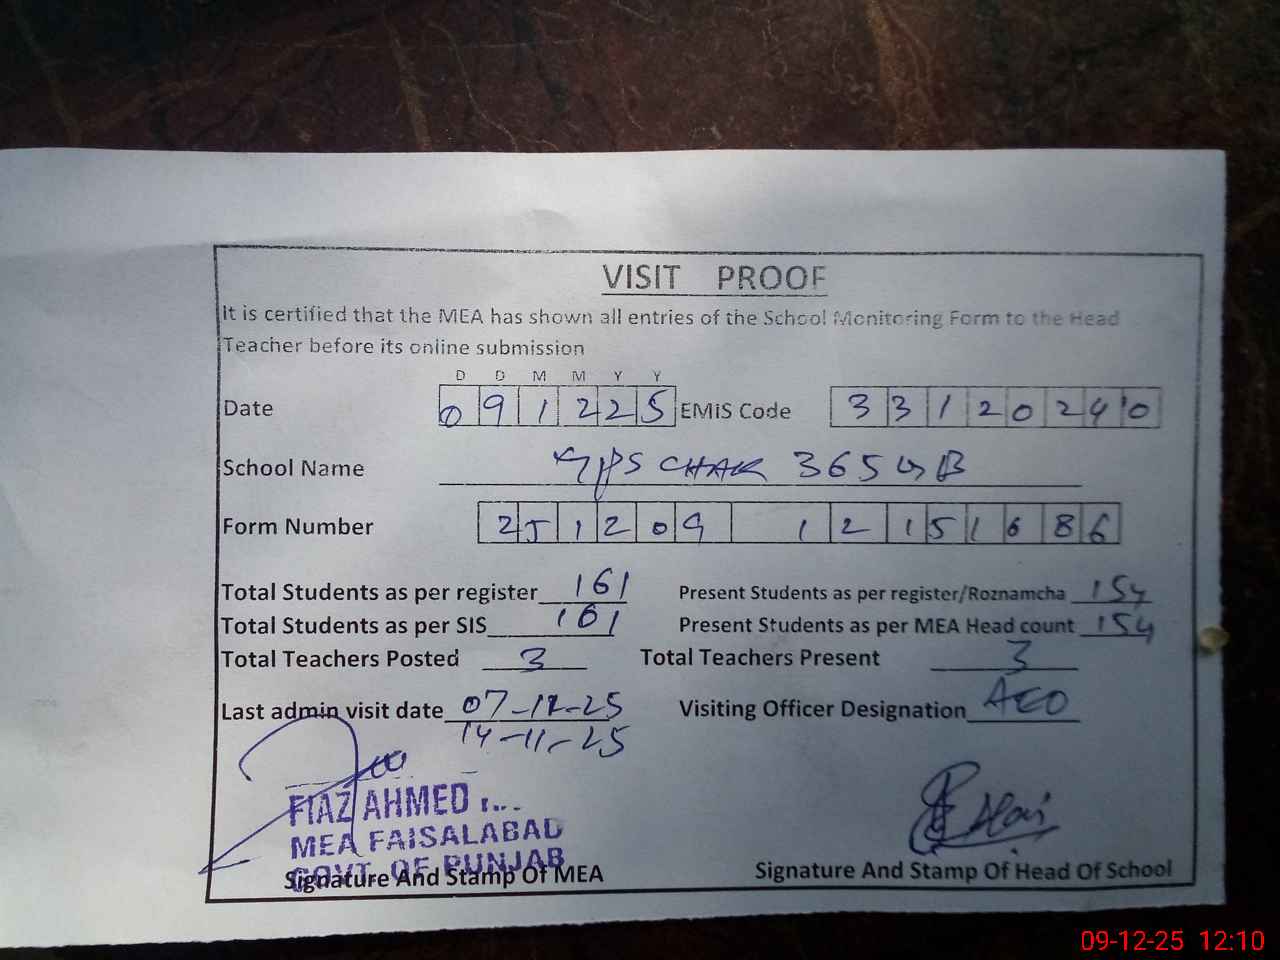 VISIT PROOF
It is certified that the MEA has shown all entries of the School Monitoring Form to the Head
Teacher before its online submission
D D M M Y Y
Date 0 9 1 2 2 5 EMIS Code 3 3 1 2 0 2 4 0
School Name GPS CHAK 365 GB
Form Number 2 5 1 2 0 9 1 2 1 5 1 6 8 6
Total Students as per register 161 Present Students as per register/Roznamcha 154
Total Students as per SIS 161 Present Students as per MEA Head count 154
Total Teachers Posted 3 Total Teachers Present 3
Last admin visit date 07-12-25 Visiting Officer Designation AEO
14-11-25
FIAZ AHMED
MEA FAISALABAD
GOVT. OF PUNJAB
Signature And Stamp Of MEA Signature And Stamp Of Head Of School
09-12-25 12:10